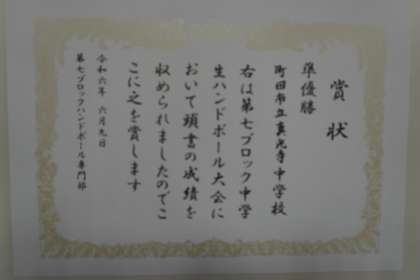 賞状
準優勝
町田市立真光寺中学校
右は第七ブロック中学
生ハンドボール大会に
おいて頭書の成績を
収められましたのでこ
こに之を賞します
令和六年六月九日
第七ブロックハンドボール専門部